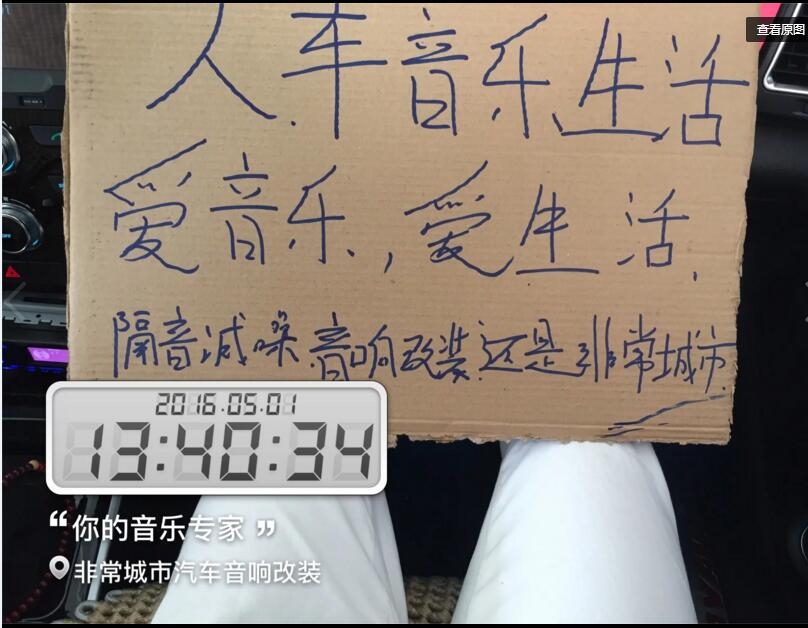 查看原图
人车音乐生活
爱音乐,爱生活,
隔音减噪音响改装还是非常城市
2016.05.01
13:40:34
“你的音乐专家”
非常城市汽车音响改装